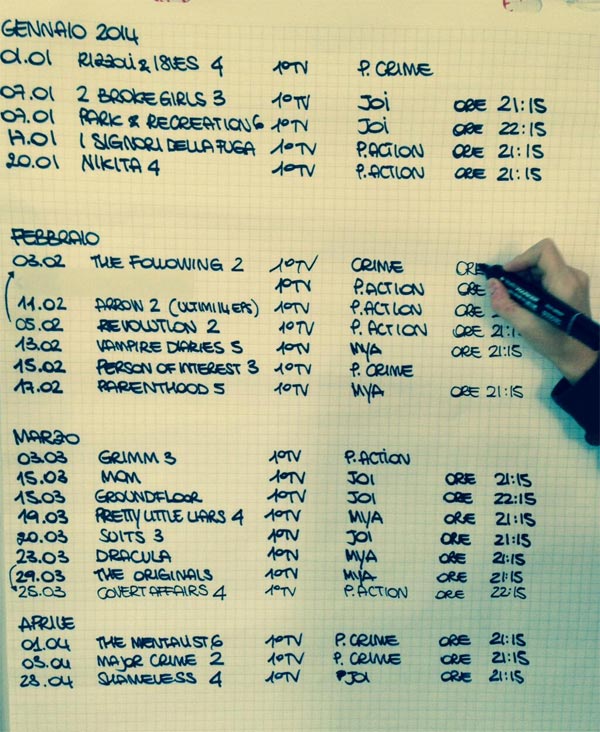 GENNAIO 2014
01.01 RIZZOLI & ISLES 4 1°TV P. CRIME
07.01 2 BROKE GIRLS 3 1°TV JOI ORE 21:15
07.01 PARK & RECREATION 6 1°TV JOI ORE 22:15
17.01 I SIGNORI DELLA FUGA 1°TV P.ACTION ORE 21:15
20.01 NIKITA 4 1°TV P.ACTION ORE 21:15
FEBBRAIO
03.02 THE FOLLOWING 2 1°TV CRIME ORE
1°TV P.ACTION ORE
11.02 ARROW 2 (ULTIMI 14 EPS) 1°TV P.ACTION ORE
05.02 REVOLUTION 2 1°TV P.ACTION ORE 21:1
13.02 VAMPIRE DIARIES 5 1°TV MYA ORE 21:15
15.02 PERSON OF INTEREST 3 1°TV P. CRIME
17.02 PARENTHOOD 5 1°TV MYA ORE 21:15
MARZO
03.03 GRIMM 3 1°TV P.ACTION
15.03 MOM 1°TV JOI ORE 21:15
15.03 GROUNDFLOOR 1°TV JOI ORE 22:15
19.03 PRETTY LITTLE LIARS 4 1°TV MYA ORE 21:15
20.03 SUITS 3 1°TV JOI ORE 21:15
23.03 DRACULA 1°TV MYA ORE 21:15
29.03 THE ORIGINALS 1°TV MYA ORE 21:15
25.03 COVERT AFFAIRS 4 1°TV P.ACTION ORE 22:15
APRILE
01.04 THE MENTALIST 6 1°TV P. CRIME ORE 21:15
05.04 MAJOR CRIME 2 1°TV P. CRIME ORE 21:15
28.04 SHAMELESS 4 1°TV JOI ORE 21:15